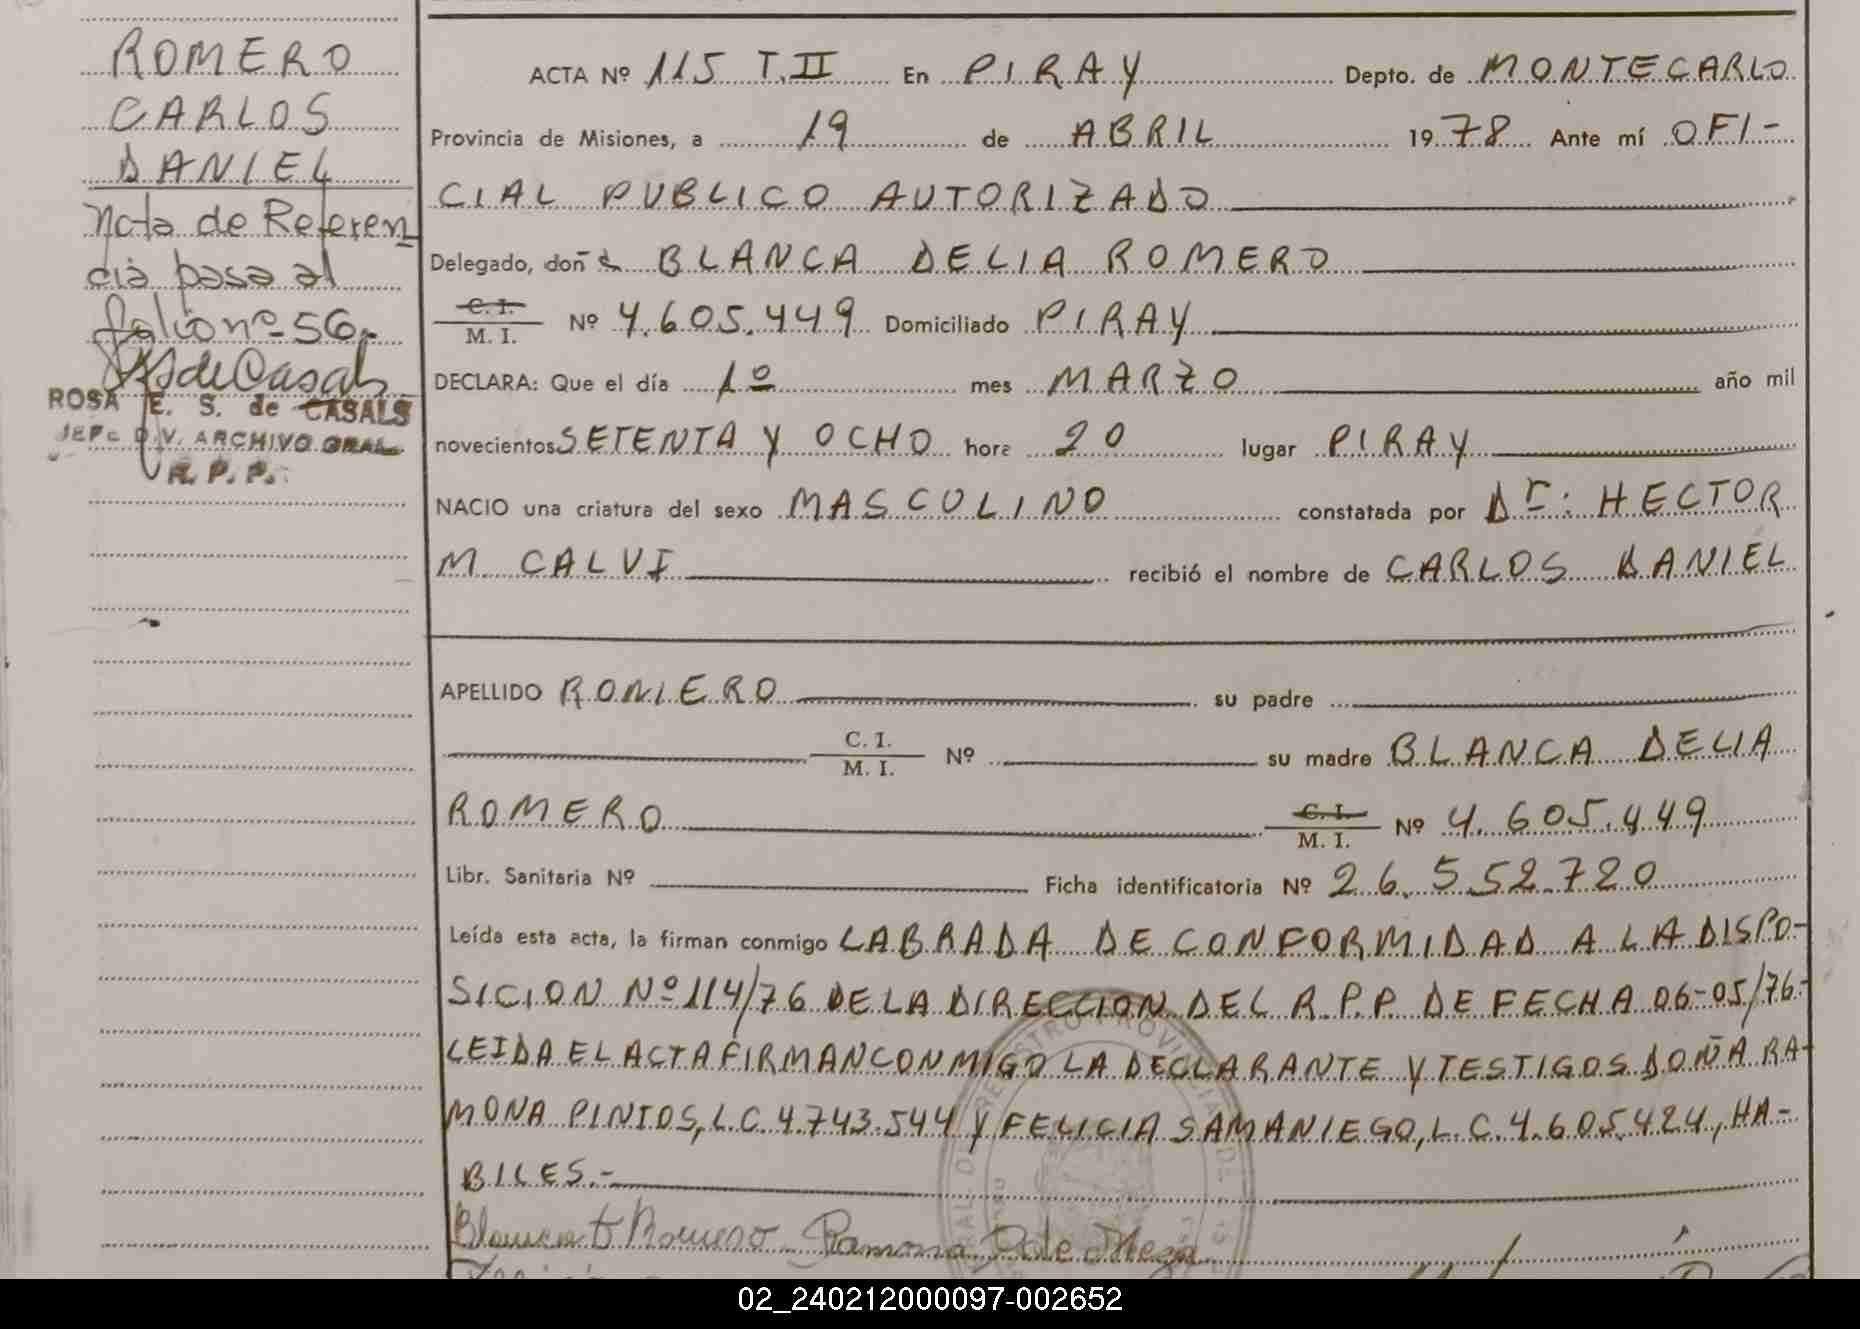 ROMERO
CARLOS
DANIEL
Nota de Referen
cia pasa al
folio nº 56.
RSdeCasals
ROSA E. S. de CASALS
JEFE DIV. ARCHIVO GRAL
R. P. P.
ACTA Nº 115 T.II En PIRAY Depto. de MONTECARLO
Provincia de Misiones, a 19 de ABRIL 1978 Ante mí OFI-
CIAL PUBLICO AUTORIZADO
Delegado, doña BLANCA DELIA ROMERO
C. I.
M. I. Nº 4.605.449 Domiciliado PIRAY
DECLARA: Que el día 1º mes MARZO año mil
novecientos SETENTA Y OCHO hora 20 lugar PIRAY
NACIO una criatura del sexo MASCULINO constatada por Dr: HECTOR
M CALVI recibió el nombre de CARLOS DANIEL
APELLIDO ROMERO su padre
C. I.
M. I. Nº su madre BLANCA DELIA
ROMERO C. I.
M. I. Nº 4.605.449
Libr. Sanitaria Nº Ficha identificatoria Nº 26.552.720
Leída esta acta, la firman conmigo LABRADA DE CONFORMIDAD A LA DISPO-
SICION Nº 114/76 DE LA DIRECCION DEL R.P.P. DE FECHA 06-05/76.-
LEIDA EL ACTA FIRMAN CONMIGO LA DECLARANTE Y TESTIGOS DOÑA RA-
MONA PINTOS, L.C. 4.743.544 Y FELICIA SAMANIEGO, L.C. 4.605.424, HA-
BILES.-
Blanca D Romero Ramona P de Meza
02_240212000097-002652